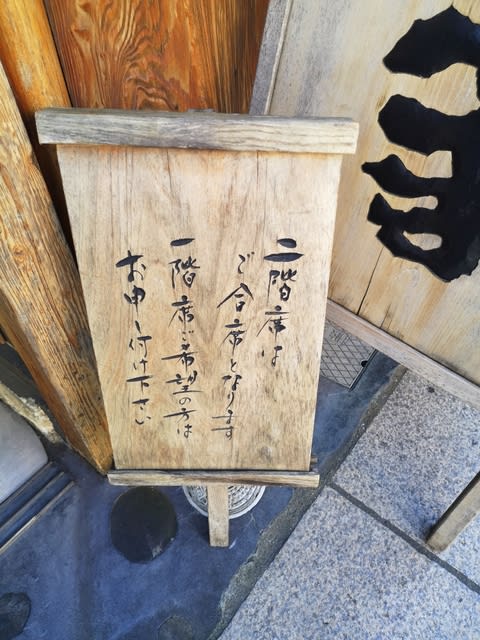 二階席は
ご合席となります
一階席ご希望の方は
お申し付け下さい